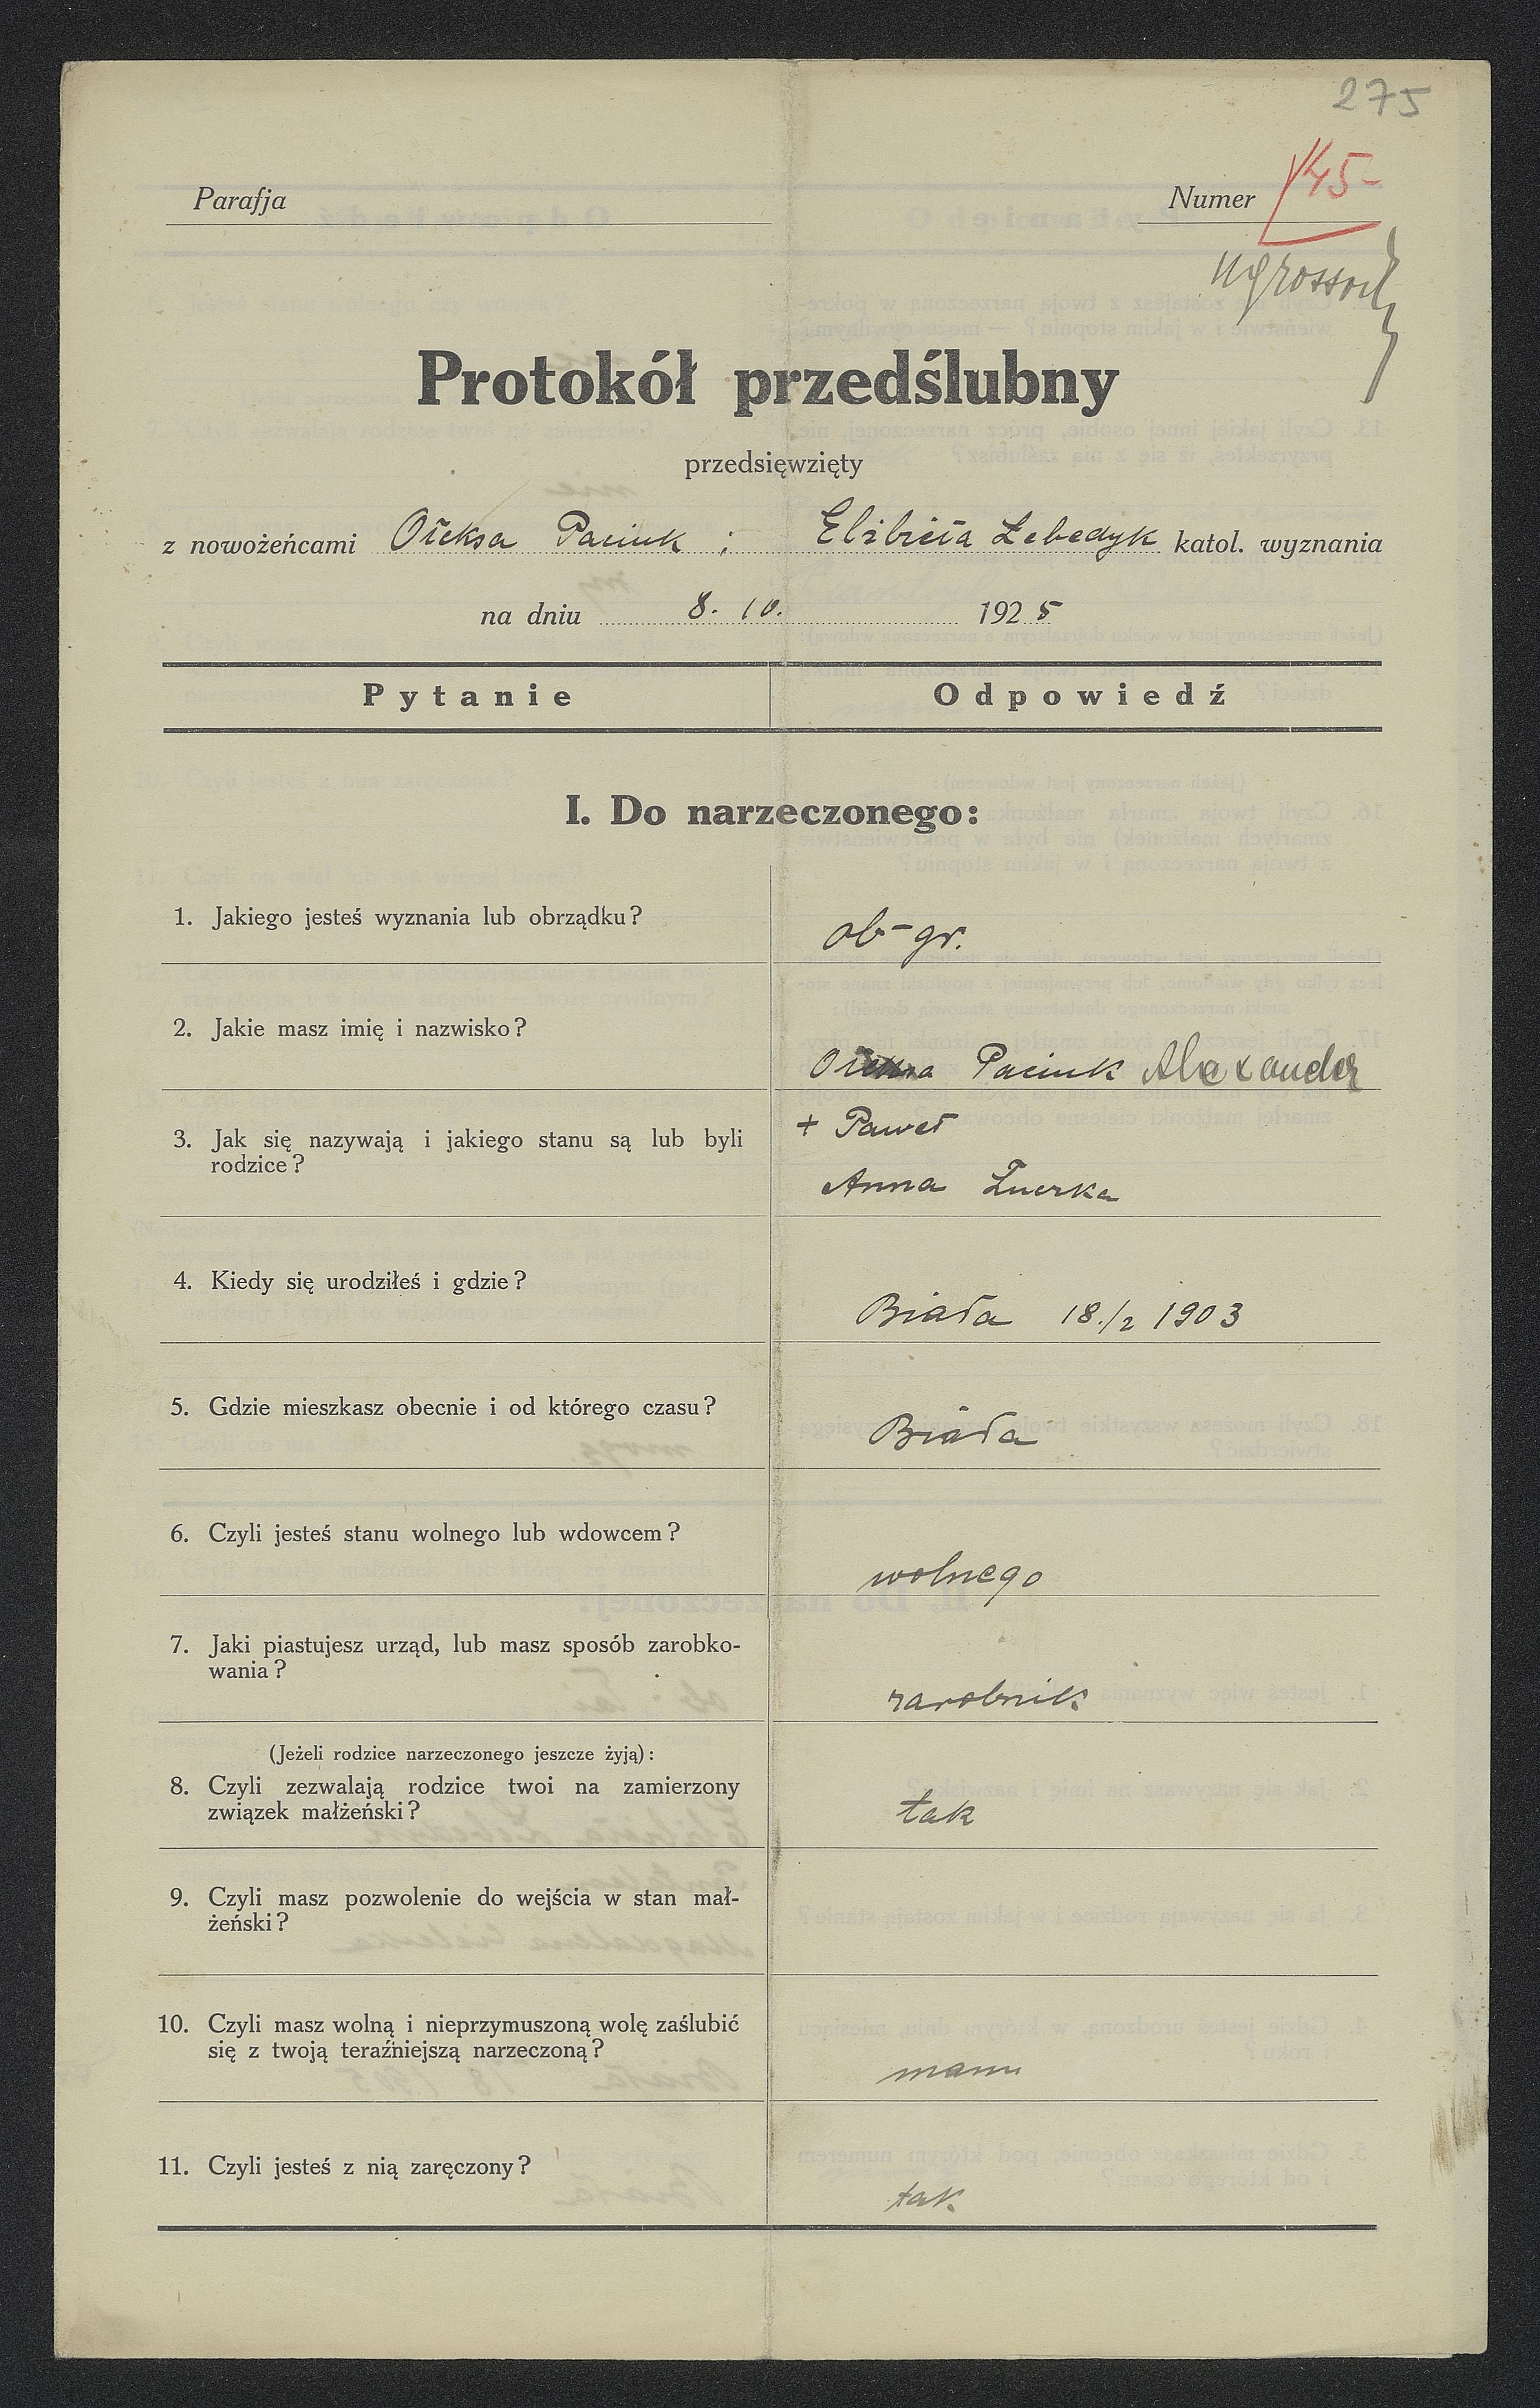 275
Parafja
Numer 145-
Protokół przedślubny
przedsięwzięty
z nowożeńcami Ołeksa Paciuk i Elżbieta Łebedyk katol. wyznania
na dniu 8. 10. 1925
Pytanie Odpowiedź
I. Do narzeczonego:
1. Jakiego jesteś wyznania lub obrządku?
ob-gr.
2. Jakie masz imię i nazwisko?
Ołeksa Paciuk Alexander
3. Jak się nazywają i jakiego stanu są lub byli
rodzice?
+ Paweł
Anna
4. Kiedy się urodziłeś i gdzie?
Biała 18./2 1903
5. Gdzie mieszkasz obecnie i od którego czasu?
Biała
6. Czyli jesteś stanu wolnego lub wdowcem?
wolnego
7. Jaki piastujesz urząd, lub masz sposób zarobko-
wania?
zarobnik
(Jeżeli rodzice narzeczonego jeszcze żyją):
8. Czyli zezwalają rodzice twoi na zamierzony
związek małżeński?
tak
9. Czyli masz pozwolenie do wejścia w stan mał-
żeński?
10. Czyli masz wolną i nieprzymuszoną wolę zaślubić
się z twoją teraźniejszą narzeczoną?
mam
11. Czyli jesteś z nią zaręczony?
tak